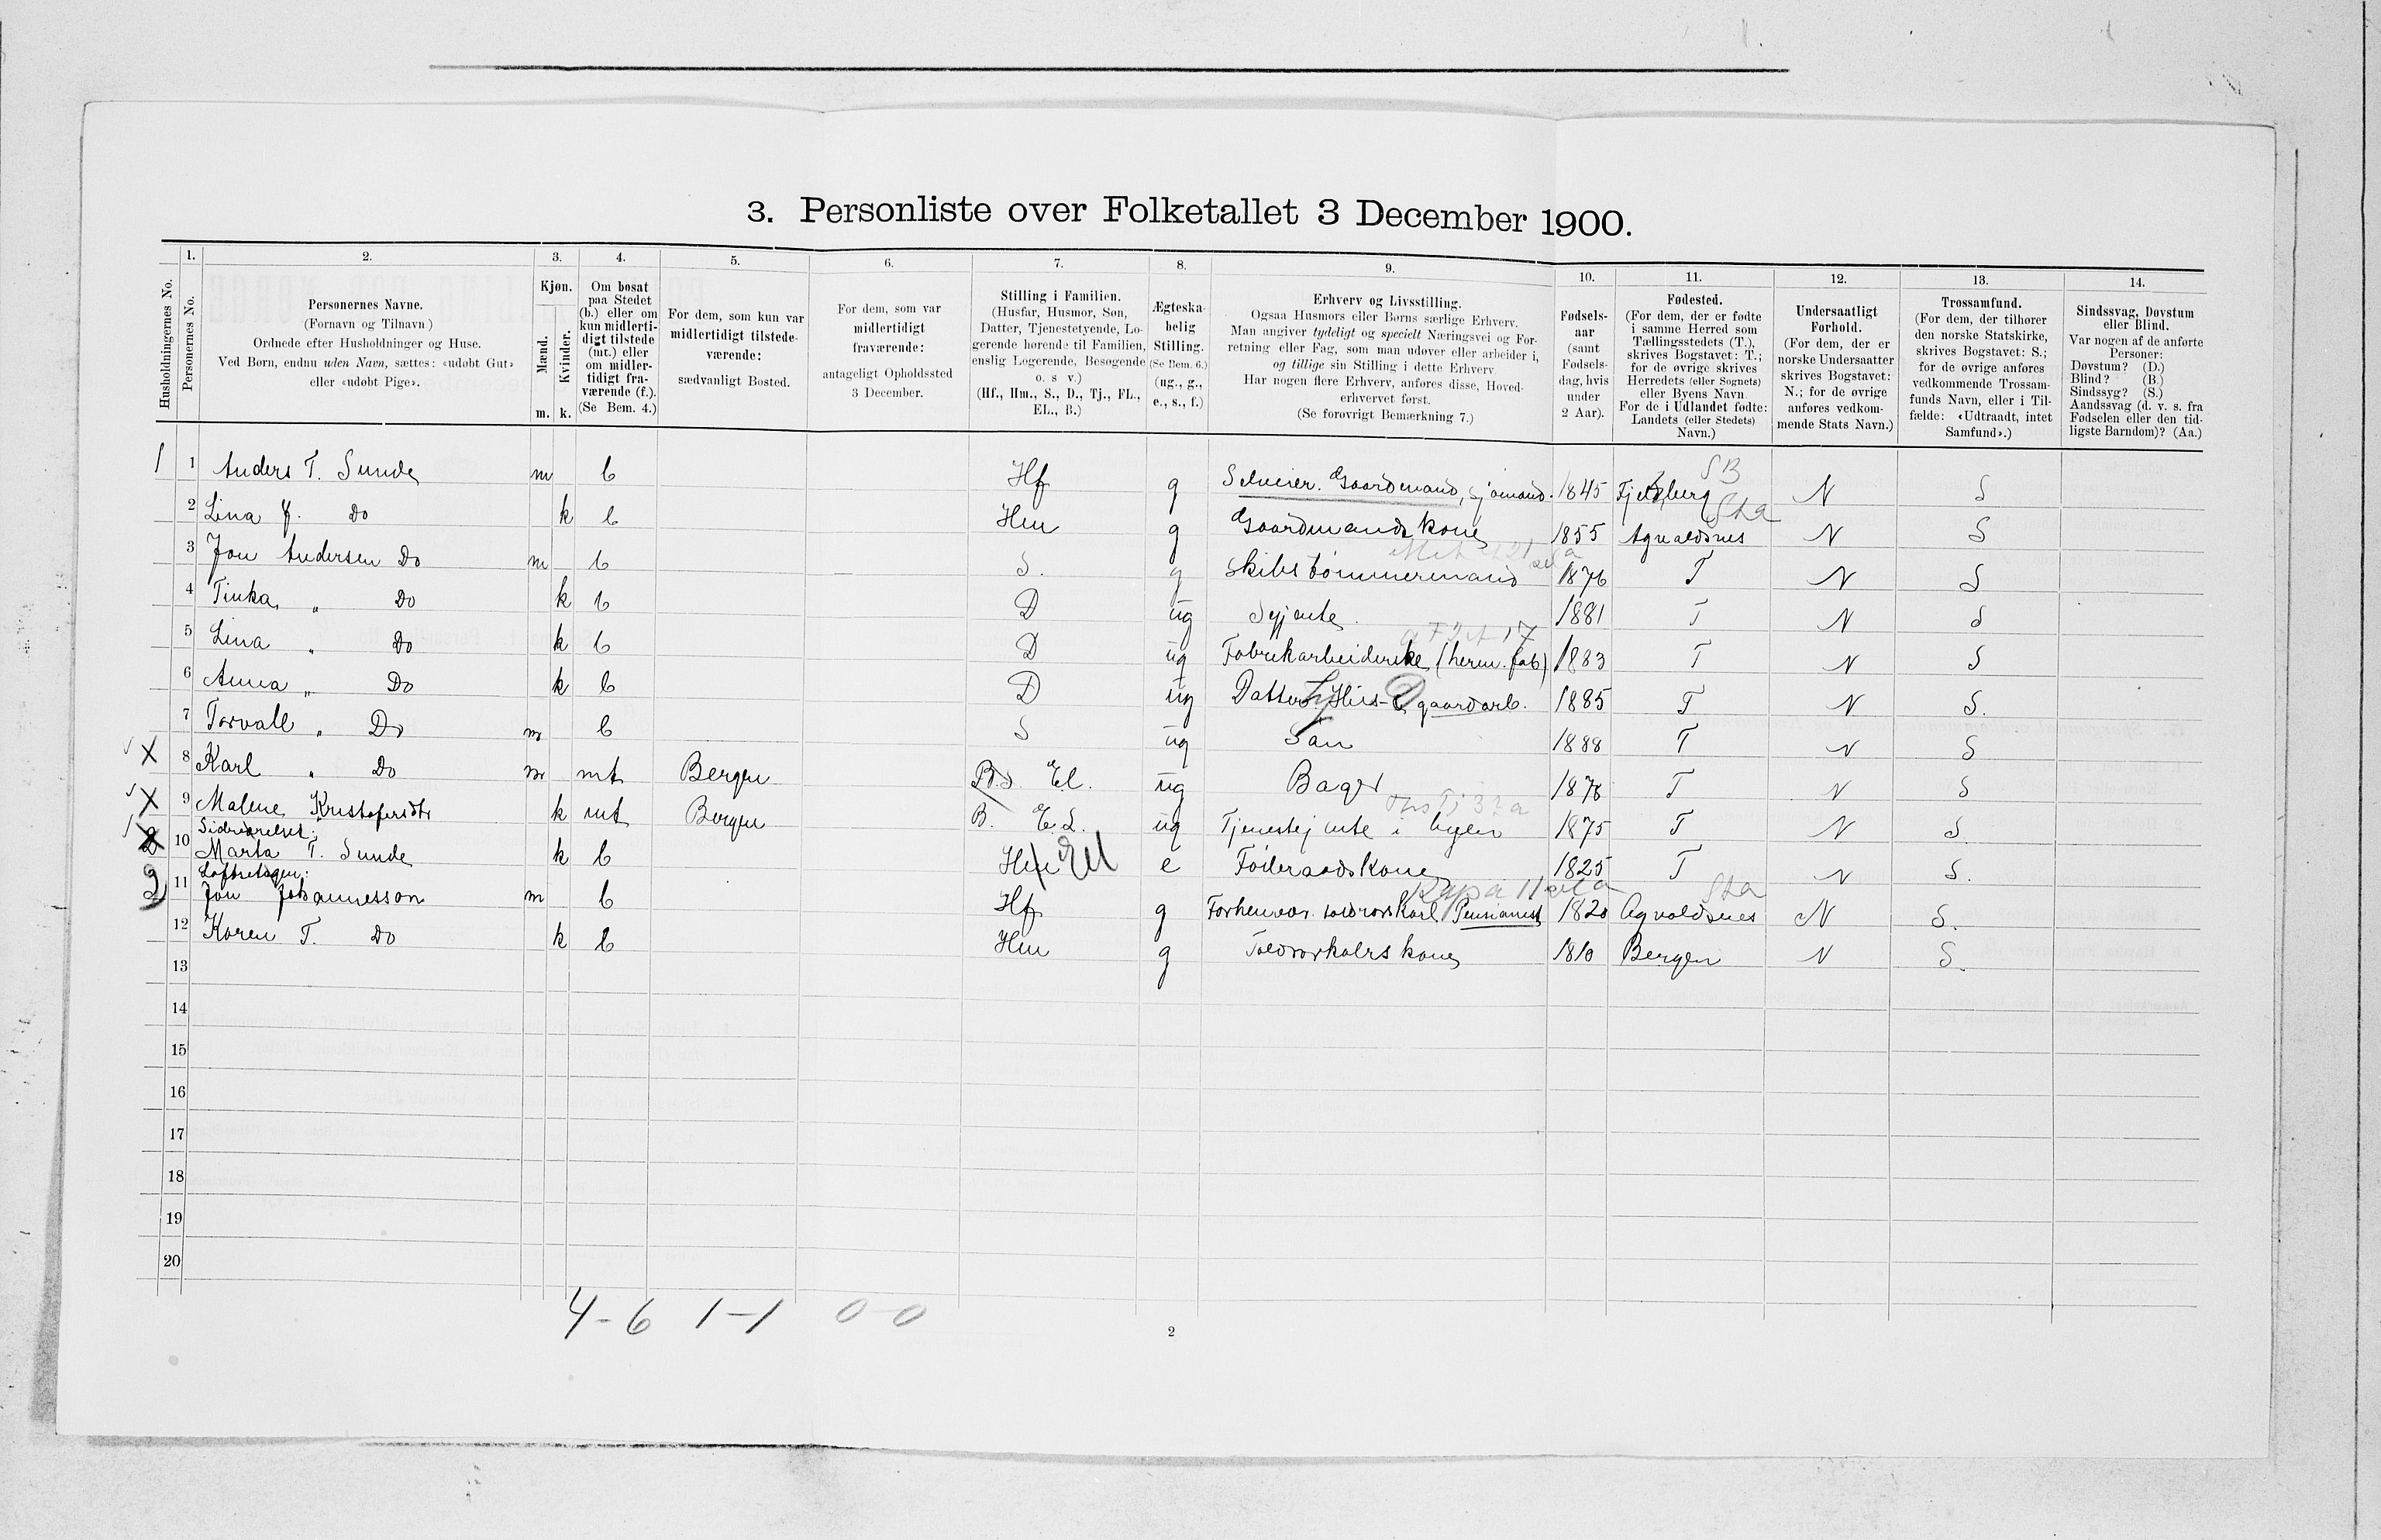 3. Personliste over Folketallet 3 December 1900.
Husholdningernes No.
1.
Personernes No.
2.
Personernes Navne.
(Fornavn og Tilnavn)
Ordnede efter Husholdninger og Huse.
Ved Børn, endnu uden Navn, sættes: «udøbt Gut»
eller «udøbt Pige».
3.
Kjøn.
Mænd.
Kvinder.
m. k.
4.
Om bosat
paa Stedet
(b.) eller om
kun midlerti-
digt tilstede
(mt.) eller
om midler-
tidigt fra-
værende (f.).
(Se Bem. 4.)
5.
For dem, som kun var
midlertidigt tilstede-
værende:
sædvanligt Bosted.
6.
For dem, som var
midlertidigt
fraværende:
antageligt Opholdssted
3 December.
7.
Stilling i Familien.
(Husfar, Husmor, Søn,
Datter, Tjenestetyende, Lo-
gerende hørende til Familien,
enslig Logerende, Besøgende
o. s v.)
(Hf., Hm., S., D., Tj., FL.,
EL., B.)
8.
Ægteska-
belig
Stilling.
(Se Bem. 6.)
(ug., g.,
e., s., f.)
9.
Erhverv og Livsstilling.
Ogsaa Husmors eller Børns særlige Erhverv.
Man angiver tydeligt og specielt Næringsvei og For-
retning eller Fag, som man udøver eller arbeider i,
og tillige sin Stilling i dette Erhverv.
Har nogen flere Erhverv, anføres disse, Hoved-
erhvervet først.
(Se forøvrigt Bemærkning 7.)
10.
Fødsels-
aar
(samt
Fødsels-
dag, hvis
under
2 Aar).
11.
Fødested.
(For dem, der er fødte
i samme Herred som
Tællingsstedets (T.),
skrives Bogstavet: T.;
for de øvrige skrives
Herredets (eller Sognets)
eller Byens Navn.
For de i Udlandet fødte:
Landets (eller Stedets)
Navn.)
12.
Undersaatligt
Forhold.
(For dem, der er
norske Undersaatter
skrives Bogstavet:
N.; for de øvrige
anføres vedkom-
mende Stats Navn.)
13.
Trossamfund.
(For dem, der tilhører
den norske Statskirke,
skrives Bogstavet: S.;
for de øvrige anføres
vedkommende Trossam-
funds Navn, eller i Til-
fælde: «Udtraadt, intet
Samfund».)
14.
Sindssvag, Døvstum
eller Blind.
Var nogen af de anførte
Personer:
Døvstum? (D.)
Blind? (B.)
Sindssyg? (S.)
Aandssvag (d. v. s. fra
Fødselen eller den tid-
ligste Barndom)? (Aa.)
SB
1 1 Anders T. Sunde m b Hf g Selveier. Gaardmand, sjømand. 1845 Fjelberg N S
Sta
2 Lina J. Do k b Hm g Gaardmands kone 1855 Agvaldsnes N S
3 Jon Andersen Do m b S. g Skibstømmermand 1876 T N S
4 Tinka " Do k b D ug Syjente. 1881 T N S
5 Lina " Do k b D ug Fabrikarbeiderske (herm. fab) 1883 T N S
6 Anna " Do k b D ug Datter. Hus- & gaardarb. 1885 T N S.
7 Torvall " Do m b S ug Søn 1888 T N S
X 8 Karl " Do m mt Bergen El. ug Bager 1876 T N S
X 9 Malene Kristofersdtr k mt Bergen B. E L. ug Tjenestejente i byen 1875 T N S.
Sideværelset:
2 10 Marta T. Sunde k b Hm El e Føderaadskone 1825 T N S.
Loftsetagen:
Sta
2 11 Jon Johannesson m b Hf g Forhenvær. toldrorskarl Pensionist 1820 Agvaldsnes N S.
12 Karen T. Do k b Hm g Toldrorkarls kone 1810 Bergen N S.
13
14
15
16
17
18
19
20
4-6 1-1 0-0
2